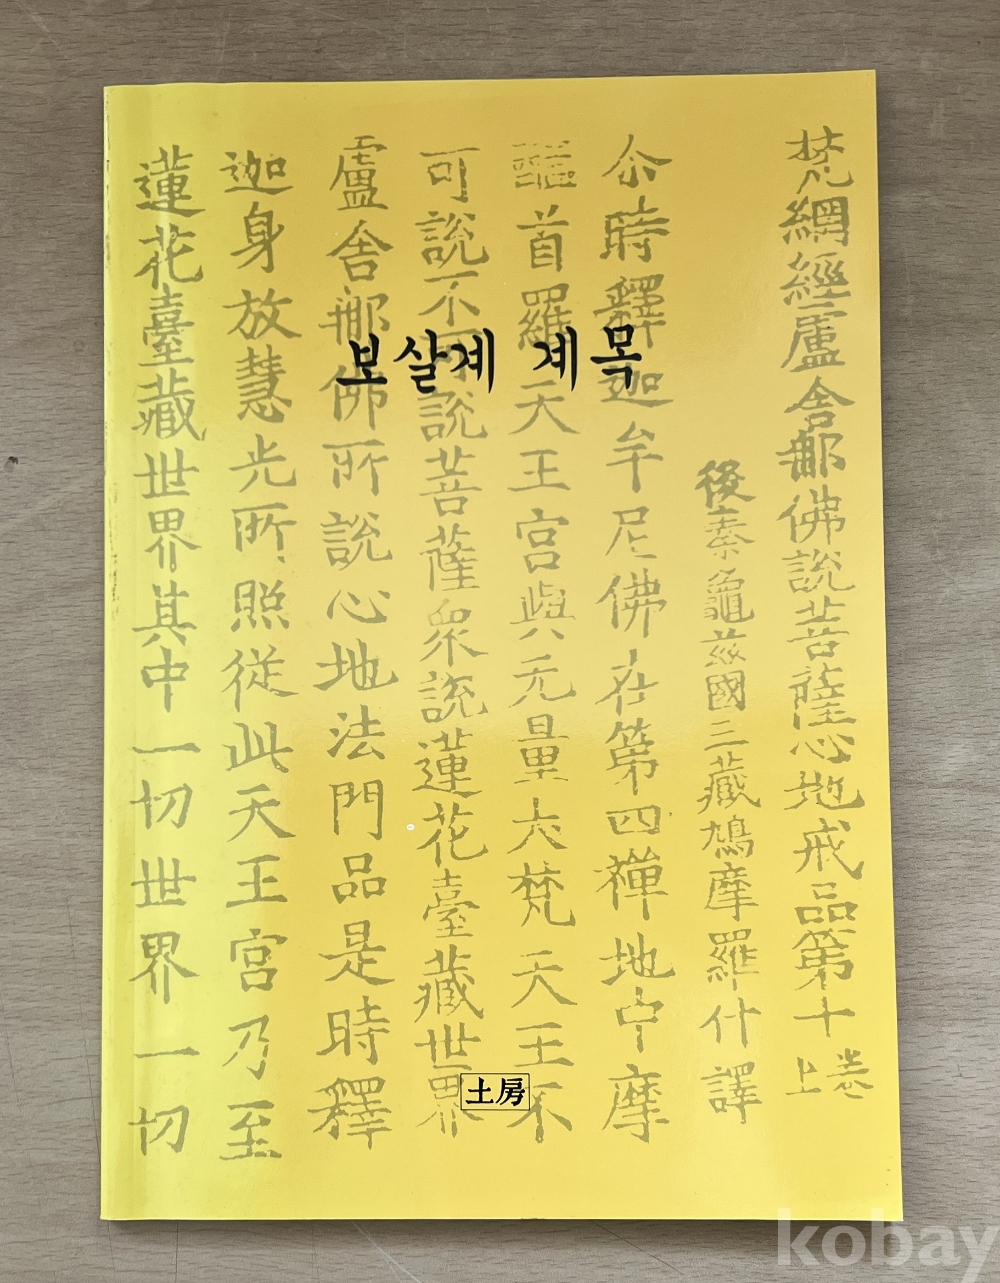 보살계 계목
梵網經盧舍那佛說菩薩心地戒品第十 卷上
後秦龜茲國三藏鳩摩羅什譯
尒時釋迦牟尼佛在第四禪地中摩
醯首羅天王宮與无量大梵天王不
可說不可說菩薩衆說蓮花臺藏世界
盧舍那佛所說心地法門品是時釋
迦身放慧光所照從此天王宮乃至
蓮花臺藏世界其中一切世界一切
土房
kobay